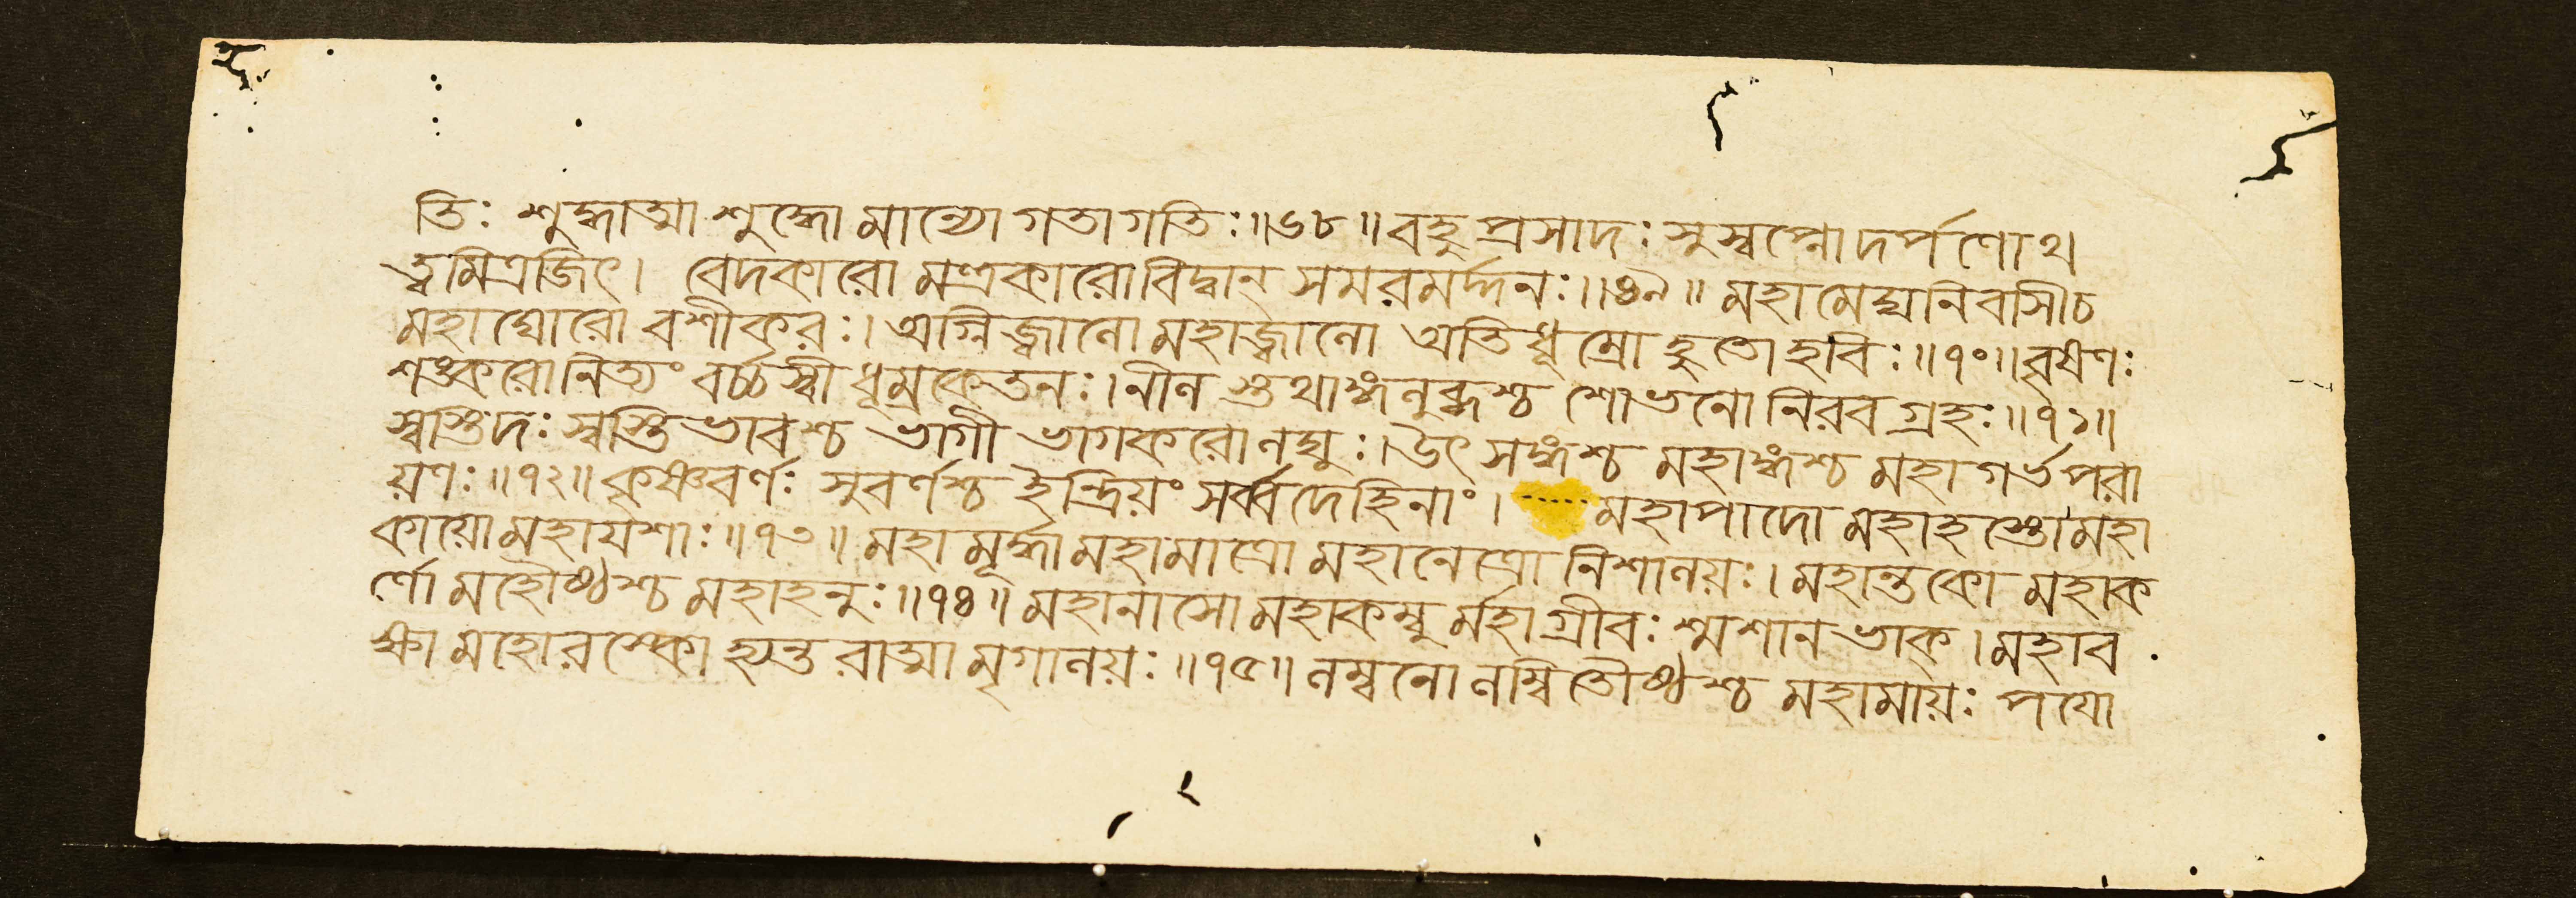 তিঃ শুদ্ধাত্মা শুদ্ধো মান্যো গতাগতিঃ॥৬৮॥ বহুপ্রসাদঃ সুস্বপ্নোদর্পণোথ
ত্বমিত্রজিৎ। বেদকারো মন্ত্রকারোবিদ্বান্ সমরমর্দ্দনঃ॥৬৯॥ মহামেঘনিবাসীচ
মহাঘোরো বশীকরঃ। অগ্নিজ্বালো মহাজ্বালো অতিধূম্রো হুতোহবিঃ॥৭০॥ বৃষণঃ
শঙ্করোনিত্যং বর্চ্চস্বী ধূম্রকেতনঃ। নীলস্তথাঙ্গলুব্ধশ্চ শোভনো নিরবগ্রহঃ॥৭১॥
স্বস্তিদঃ স্বস্তিভাবশ্চ ভাগী ভাগকরোলঘুঃ। উৎসঙ্গশ্চ মহাঙ্গশ্চ মহাগর্ভপরা
য়ণঃ॥৭২॥ কৃষ্ণবর্ণঃ সুবর্ণশ্চ ইন্দ্রিয়ং সর্ব্বদেহিনাং। ..... মহাপাদো মহাহস্তোমহা
কায়োমহাযশাঃ॥৭৩॥ মহামূর্দ্ধামহামাত্রো মহানেত্রো নিশালয়ঃ। মহান্তকো মহাক
র্ণো মহৌষ্ঠশ্চ মহাহনুঃ॥৭৪॥ মহানাসো মহাকম্বুর্মহাগ্রীবঃ শ্মশানভাক্। মহাব
ক্ষা মহোরস্কো হ্যন্তরাত্মা মৃগালয়ঃ॥৭৫॥ লম্বনো লম্বিতৌষ্ঠশ্চ মহামায়ঃ পয়ো